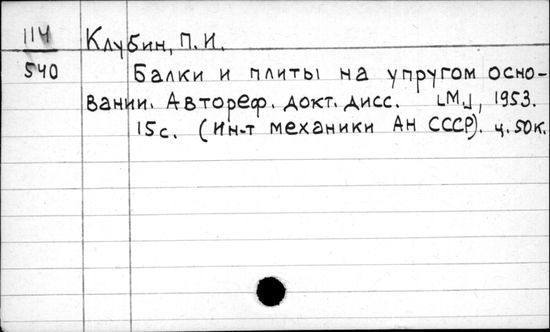 114 Клубин, П. И.
540 Балки и плиты на упругом осно-
вании. Автореф. докт. дисс. [М.], 1953.
15с. (Ин-т механики Ан СССР). ц. 50к.